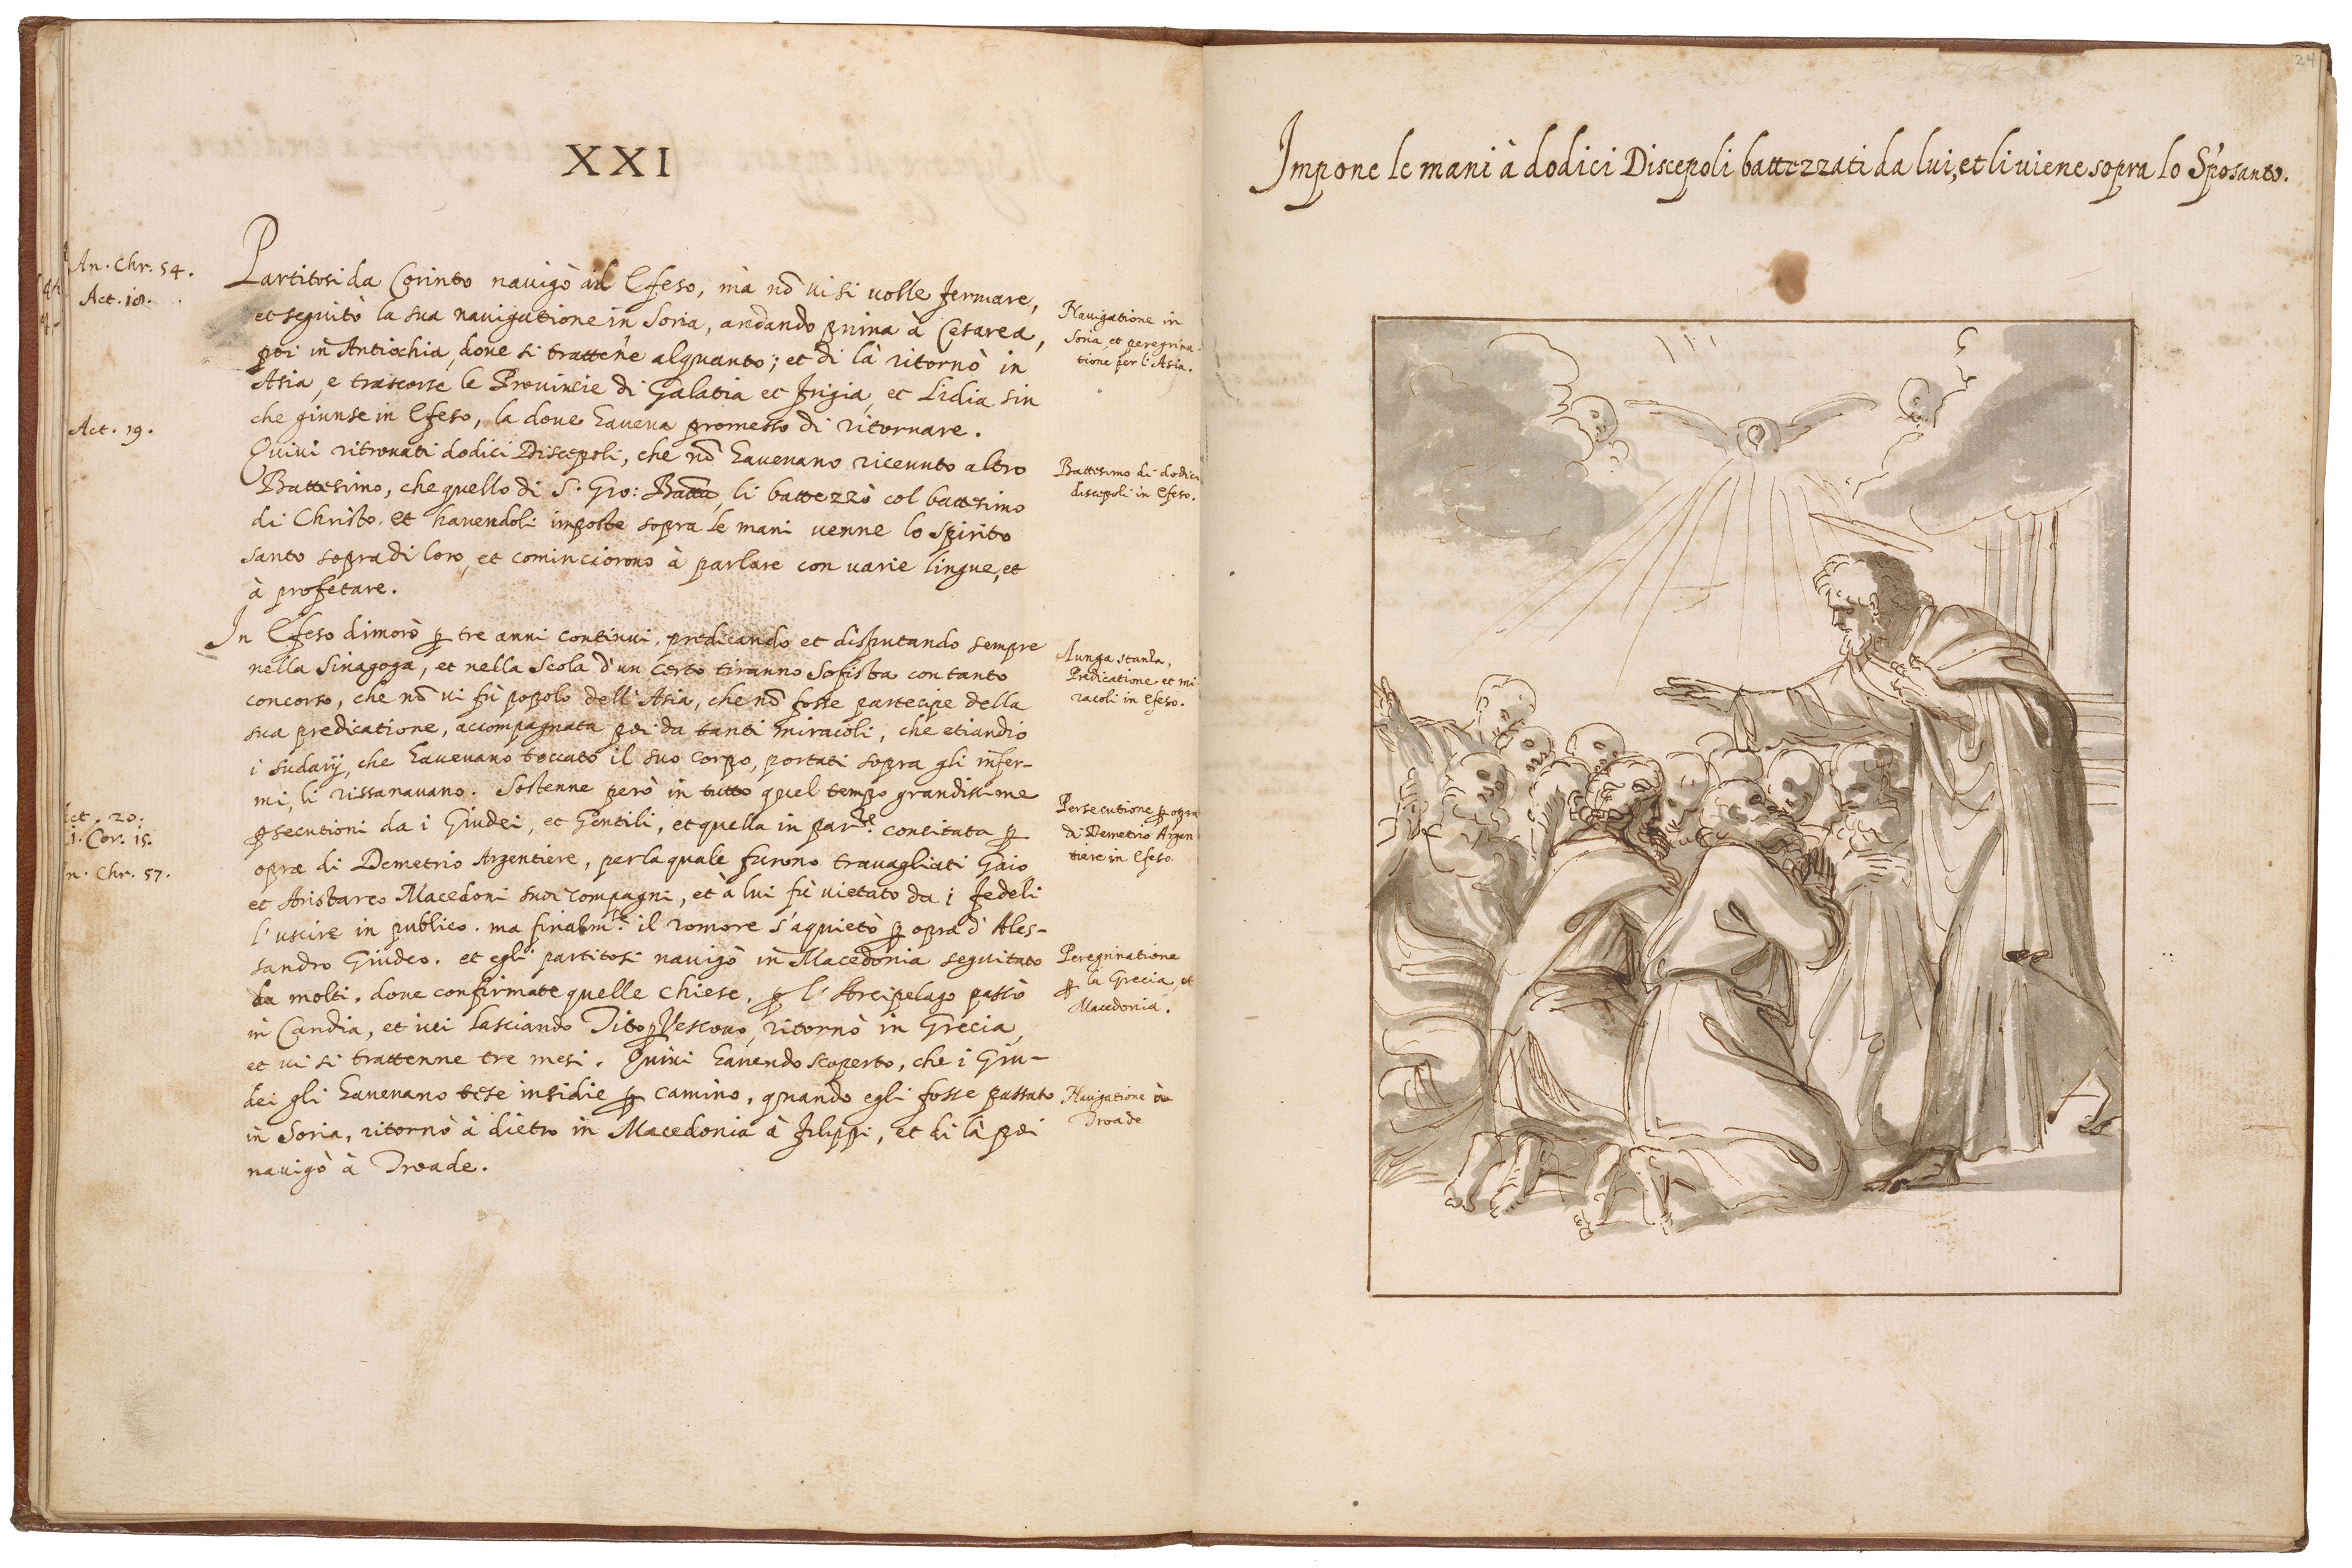 XXI
An. Chr. 54.
Act. 18.
Partitosi da Corinto navigò ad Efeso, mà nõ vi si volle fermare,
et seguitò la sua navigatione in Soria, andando prima à Cesarea,
poi in Antiochia, doue si trattene alquanto; et di là ritornò in
Asia, e trascorse le Prouincie di Galatia et Frigia, et Lidia sin
che giunse in Efeso, la doue haueua promesso di ritornare.
Navigatione in
Soria, et peregrina-
tione per l'Asia.
Act. 19.
Quiui ritrouati dodici Discepoli, che nõ haueuano riceuuto altro
Battesimo, che quello di S. Gio: Batta, li battezzò col battesimo
di Christo. et hauendoli imposte sopra le mani uenne lo Spirito
santo sopra di loro, et cominciorono à parlare con uarie lingue, et
à profetare.
Battesimo di dodici
discepoli in Efeso.
In Efeso dimorò ꝑ tre anni continui, predicando et disputando sempre
nella Sinagoga, et nella Scola d'un certo tiranno Sofista con tanto
concorso, che nõ ui fù popolo dell'Asia, che nõ fosse partecipe della
sua predicatione, accompagnata poi da tanti miracoli, che etiandio
i sudarij, che haueuano toccato il suo corpo, portati sopra gli infer-
mi, li rissanauano. Sostenne però in tutto quel tempo grandissime
ꝑsecutioni da i Giudei, et Gentili, et quella in parte. concitata ꝑ
opra di Demetrio Argentiere, per la quale furono trauagliati Gaio
et Aristarco Macedoni suoi compagni, et à lui fù uietato da i fedeli
l'uscire in publico. ma finalmte. il romore s'aquietò ꝑ opra d'Ales-
sandro Giudeo. et egli partitosi nauigò in Macedonia seguitato
da molti. doue confirmate quelle chiese, ꝑ l'Arcipelago passò
in Candia, et iui lasciando Tito ꝑ Vescouo, ritornò in Grecia,
et ui si trattenne tre mesi. Quiui hauendo scoperto, che i Giu-
dei gli haueuano tese insidie ꝑ camino, quando egli fosse passato
in Soria, ritornò à dietro in Macedonia à Filippi, et di là poi
nauigò à Troade.
Lunga stanza,
Predicatione et mi
racoli in Efeso.
Act. 20.
1. Cor. 15.
An. Chr. 57.
Persecutione ꝑ opra
di Demetrio Argen
tiere in Efeso.
Peregrinatione
ꝑ la Grecia, et
Macedonia.
Navigatione in
Troade
24
Impone le mani à dodici Discepoli battezzati da lui, et li uiene sopra lo Spo santo.